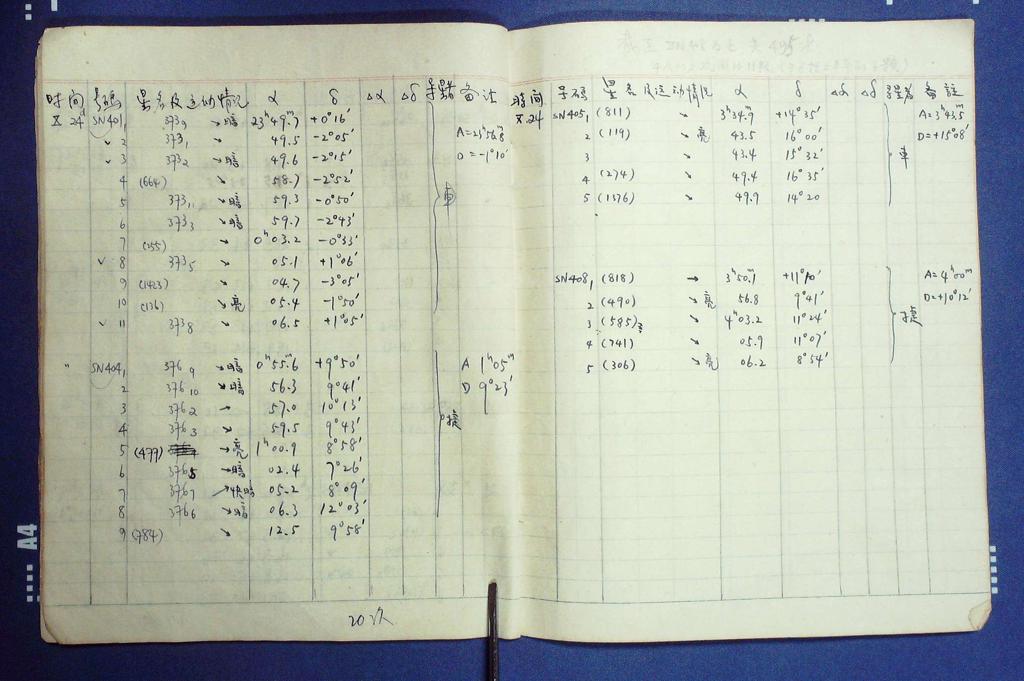 时间 号码 星名及运动情况 α δ Δα Δδ 寻星者 备注
X 24 SN401, 1 373₉ ↘暗 23ʰ49.7ᵐ +0°16′
✓ 2 373₁ 49.5 -2°05′ A=23ʰ56.8ᵐ
✓ 3 373₂ ↘暗 49.6 -2°15′ D=-1°10′
4 (664) ↘ 58.7 -2°52′
5 373₁₁ ↘暗 59.3 -0°50′ 車
6 373₃ ↘暗 59.7 -2°43′
7 (255) ↘ 0ʰ03.2 -0°33′
✓ 8 373₅ ↘ 05.1 +1°06′
9 (1423) ↘ 04.7 -3°05′
10 (136) ↘亮 05.4 -1°50′
✓ 11 373₈ ↘ 06.5 +1°05′
" SN404, 1 376₉ ↘暗 0ʰ55.6ᵐ +9°50′ A 1ʰ05ᵐ
2 376₁₀ ↘暗 56.3 9°41′ D 9°23′
3 376₂ → 57.0 10°13′
4 376₃ ↘ 59.5 9°43′
5 (479) →亮 1ʰ00.9 8°58′
6 376₅ →暗 02.4 7°26′
7 376₇ ↗快暗 05.2 8°09′
8 376₆ ↘暗 06.3 12°03′
9 (784) ↘ 12.5 9°58′
20次
时间 号码 星名及运动情况 α δ Δα Δδ 寻星者 备註
X.24 SN405, 1 (811) ↘ 3ʰ34.9ᵐ +14°35′ A=3ʰ43.5ᵐ
2 (119) ↘亮 43.5 16°00′ D=+15°08′
3 ↘ 43.4 15°32′ 車
4 (274) ↘ 49.4 16°35′
5 (1376) ↘ 49.9 14°20
SN408, 1 (818) → 3ʰ50.1ᵐ +11°10′ A=4ʰ00ᵐ
2 (490) ↘亮 56.8 9°41′ D=+10°12′
3 (585) ↘ 4ʰ03.2 11°24′
4 (741) ↘ 05.9 11°07′
5 (306) ↘亮 06.2 8°54′
A4